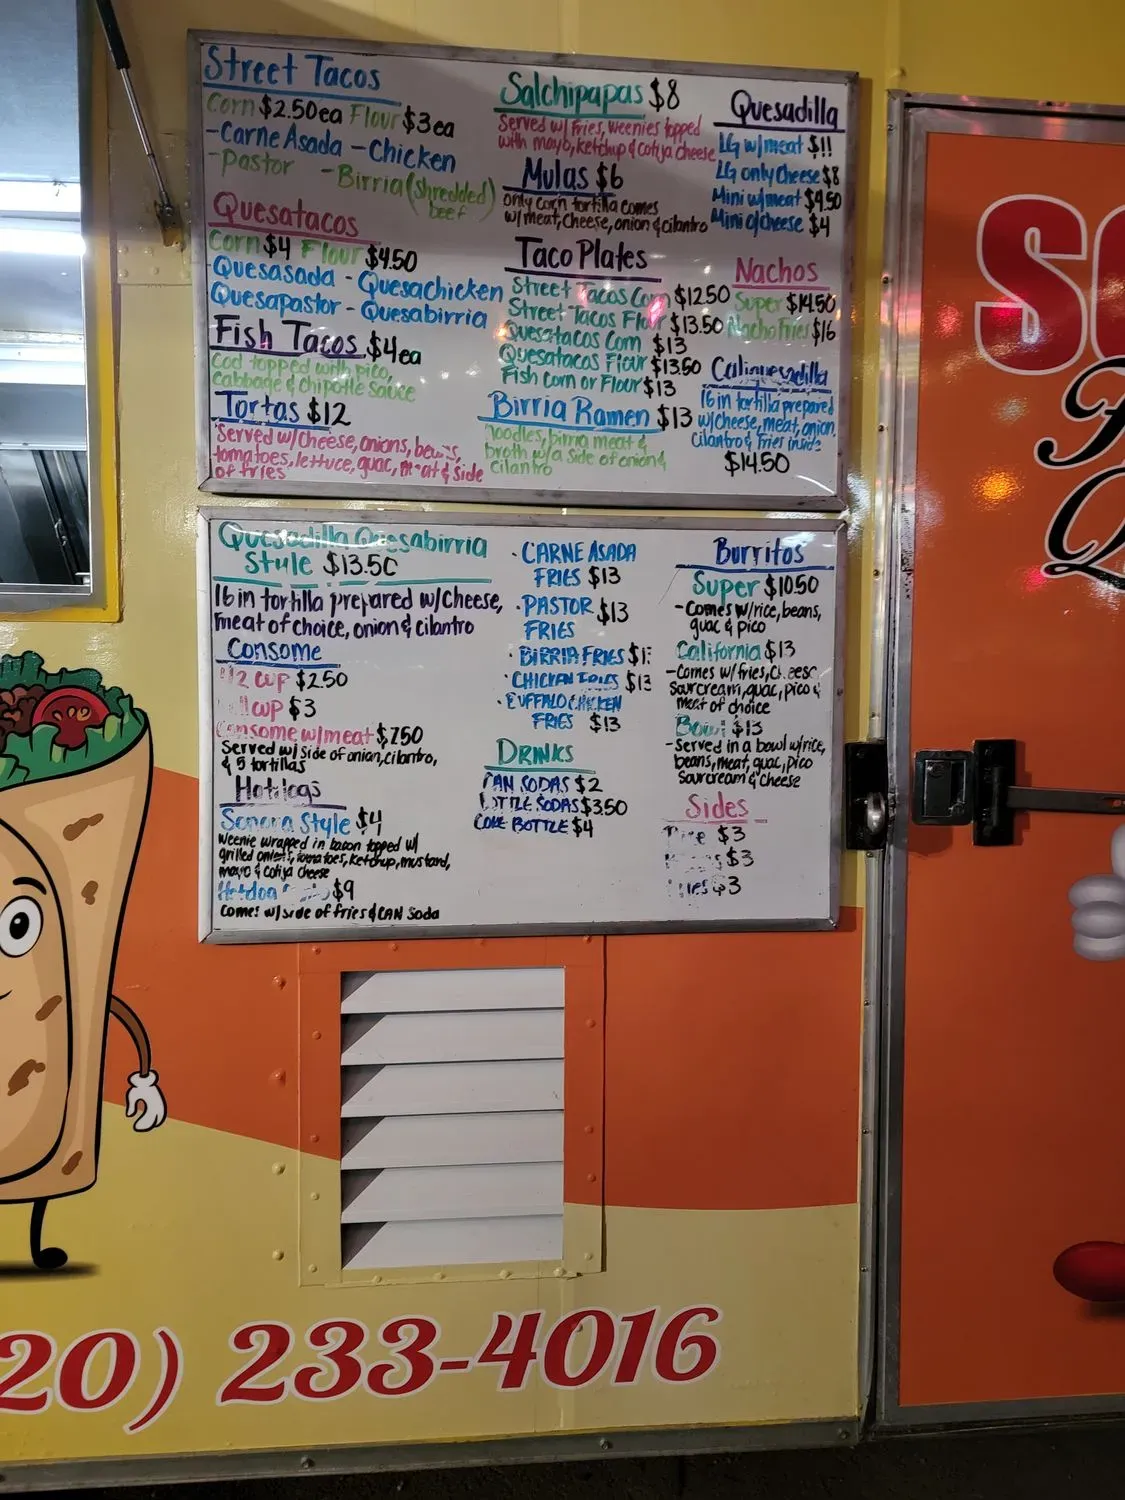 Street Tacos
Corn $2.50ea Flour $3ea
-Carne Asada -Chicken
-Pastor -Birria (shredded
beef)
Quesatacos
Corn $4 Flour $4.50
Quesasada - Quesachicken
Quesapastor - Quesabirria
Fish Tacos $4ea
Cod topped with pico,
cabbage & chipotle sauce
Tortas $12
Served w/cheese, onions, beans,
tomatoes, lettuce, guac, meat & side
of fries
Salchipapas $8
Served w/ fries, weenies topped
with mayo, ketchup & cotija cheese
Mulas $6
only corn tortilla comes
w/meat, cheese, onion & cilantro
Taco Plates
Street Tacos Corn $12.50
Street Tacos Flour $13.50
Quesatacos Corn $13
Quesatacos Flour $13.50
Fish Corn or Flour $13
Birria Ramen $13
noodles, birria meat &
broth w/a side of onion &
cilantro
Quesadilla
LG w/meat $11
LG only Cheese $8
Mini w/meat $4.50
Mini o/cheese $4
Nachos
Super $14.50
Nacho Fries $16
Caliquesadilla
16 in tortilla prepared
w/cheese, meat, onion,
cilantro & fries inside
$14.50
Quesadilla Quesabirria
Style $13.50
16 in tortilla prepared w/cheese,
meat of choice, onion & cilantro
Consome
1/2 cup $2.50
cup $3
Consome w/meat $7.50
Served w/ side of onion, cilantro,
& 5 tortillas
Hotdogs
Sonora Style $4
Weenie wrapped in bacon topped w/
grilled onions, tomatoes, ketchup, mustard,
mayo & cotija cheese
Hotdog $9
Comes w/side of fries & CAN Soda
· CARNE ASADA
FRIES $13
· PASTOR $13
FRIES
· BIRRIA FRIES
· CHICKEN FRIES $13
· BUFFALO CHICKEN
FRIES $13
DRINKS
CAN SODAS $2
BOTTLE SODAS $3.50
COKE BOTTLE $4
Burritos
Super $10.50
-Comes w/rice, beans,
guac & pico
California $13
-Comes w/fries, Cheese
Sour cream, guac, pico &
meat of choice
Bowl $13
-Served in a bowl w/rice,
beans, meat, guac, pico
Sour cream & cheese
Sides
Rice $3
$3
Fries $3
20) 233-4016